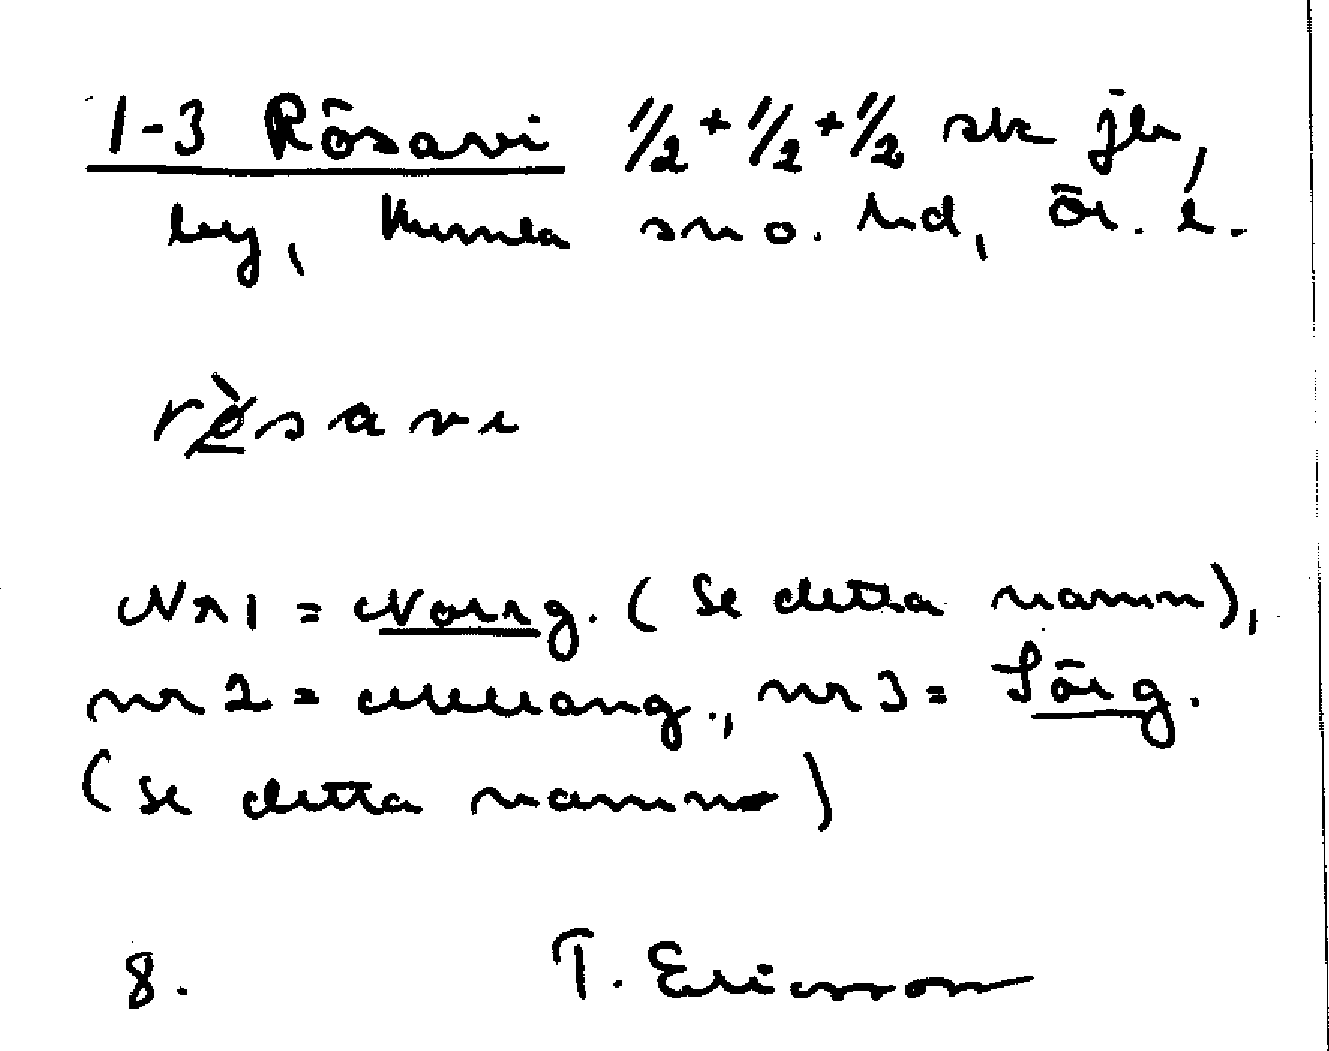 1-3 Rösavi 1/2 + 1/2 + 1/2 sk jb,
by, Kumla sn o. hd, Ör. l.
rø̀savi
Nr 1 = Norrg. (se detta namn),
nr 2 = Mellang., nr 3 = Sörg.
(se detta namn)
8. T. Ericsson